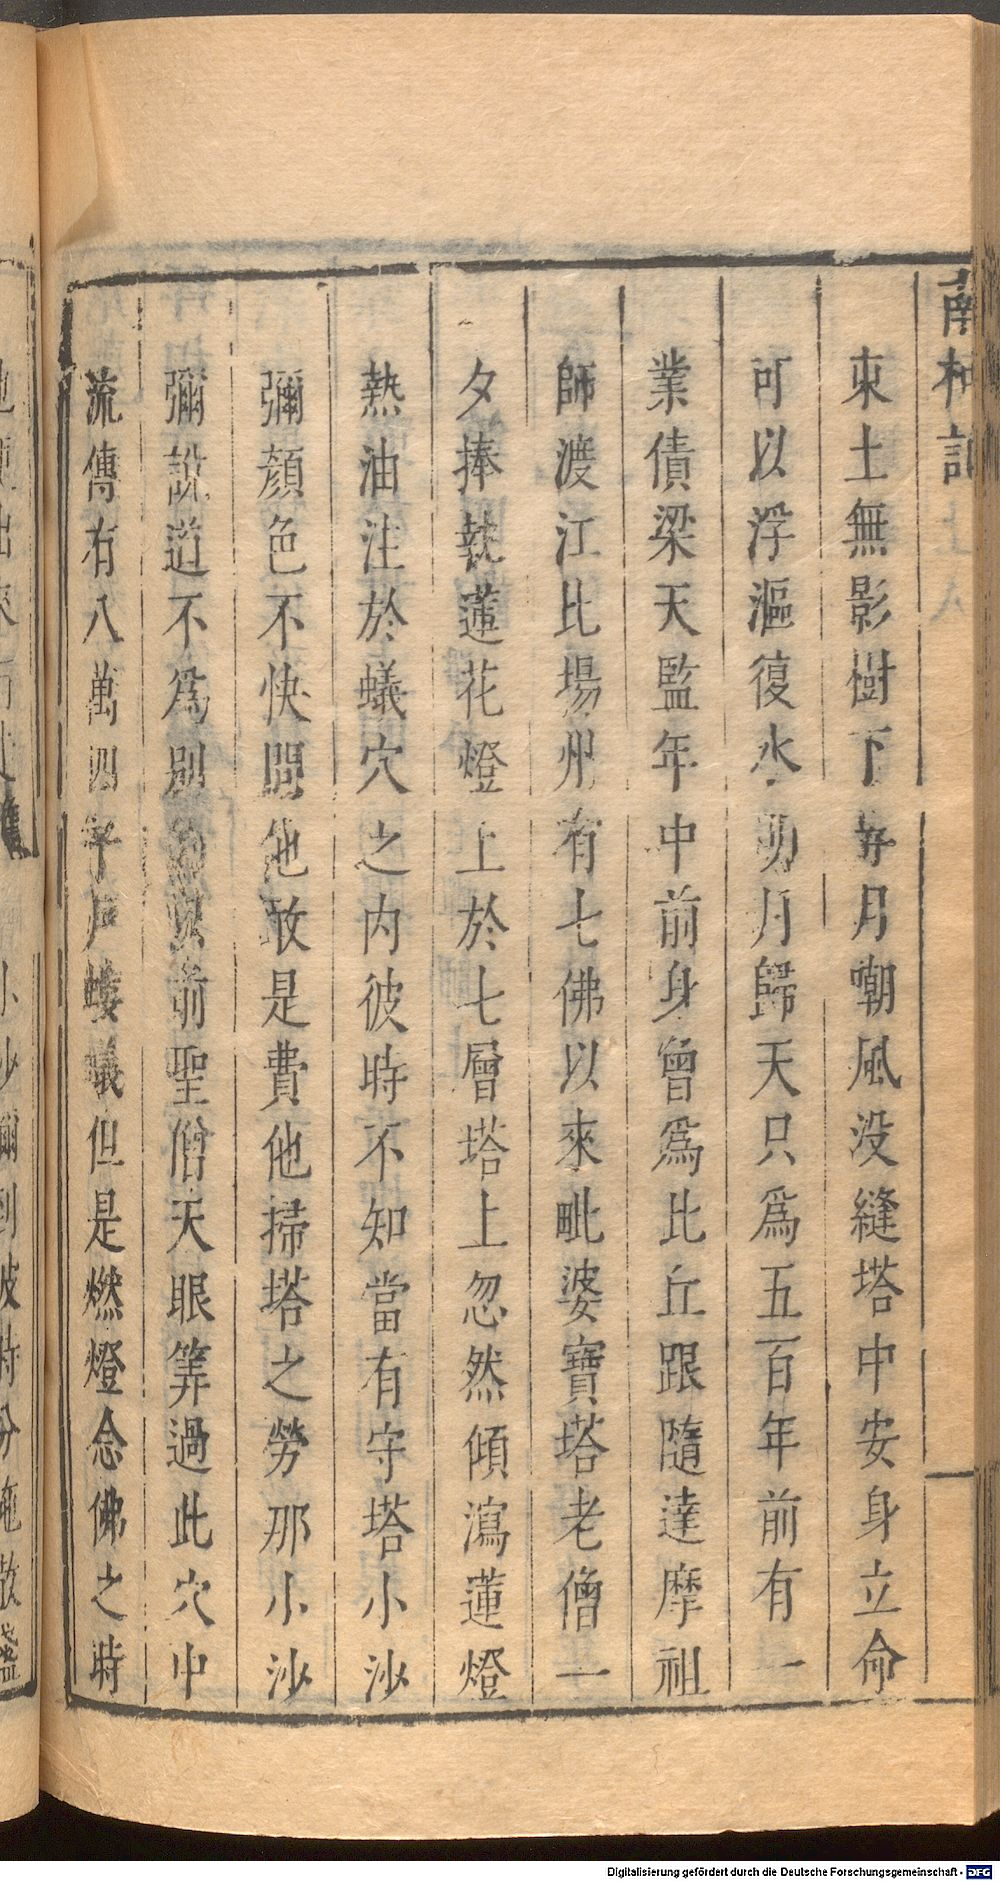 南柯記
東土無影樹下弄月嘲風没縫塔中安身立命
可以浮漚復水明月歸天只爲五百年前有一
業債梁天監年中前身曾爲比丘跟隨達摩祖
師渡江比場州有七佛以來毗婆寶塔老僧一
夕捧執蓮花燈上於七層塔上忽然傾瀉蓮燈
熱油注於蟻穴之内彼時不知當有守塔小沙
彌顔色不快問他敀是費他掃塔之勞那小沙
彌說道不爲別的以前聖僧天眼筭過此穴中
流傳有八萬四千戸螻蟻但是燃燈念佛之時
小沙彌到彼時分施散盞
Digitalisierung gefördert durch die Deutsche Forschungsgemeinschaft - DFG